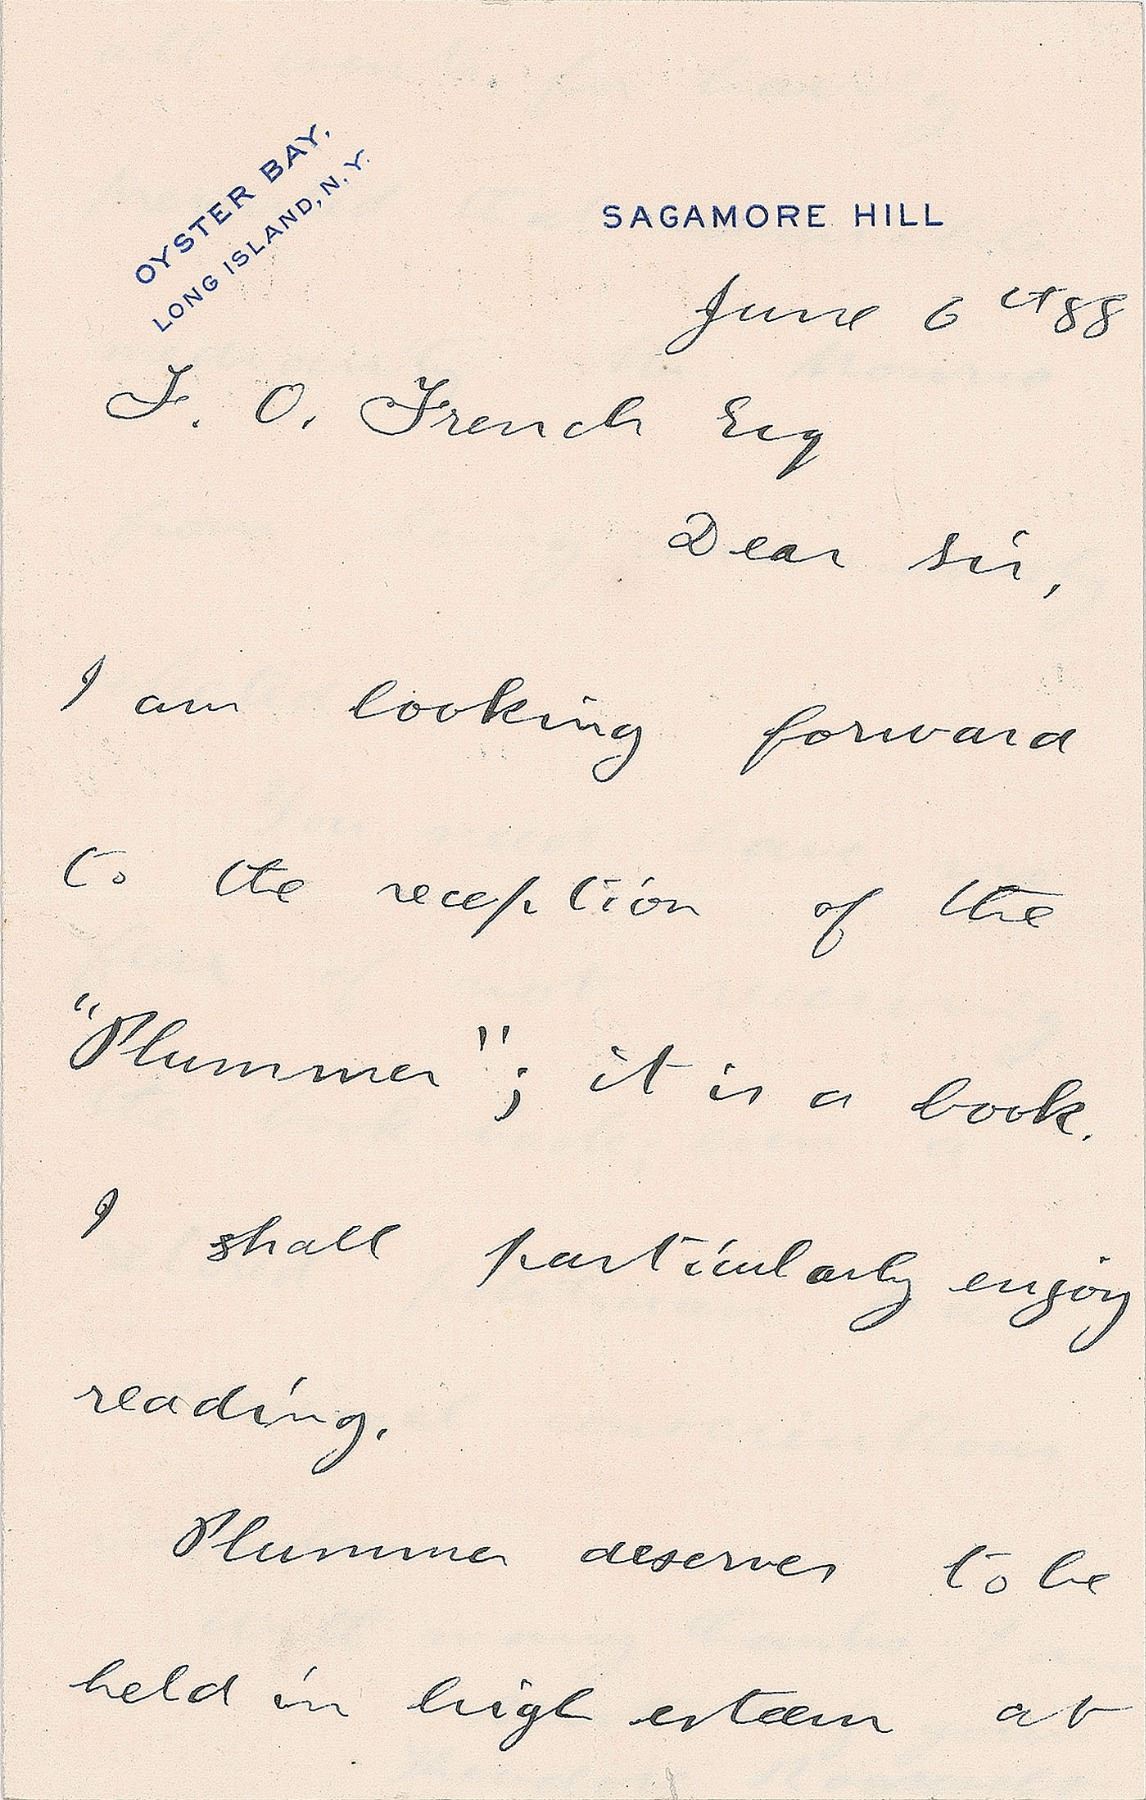 OYSTER BAY,
LONG ISLAND, N.Y.
SAGAMORE HILL
June 6th 88
F. O. French Esq
Dear Sir,
I am looking forward
to the reception of the
"Plummer"; it is a book
I shall particularly enjoy
reading.
Plummer deserves to be
held in high esteem at